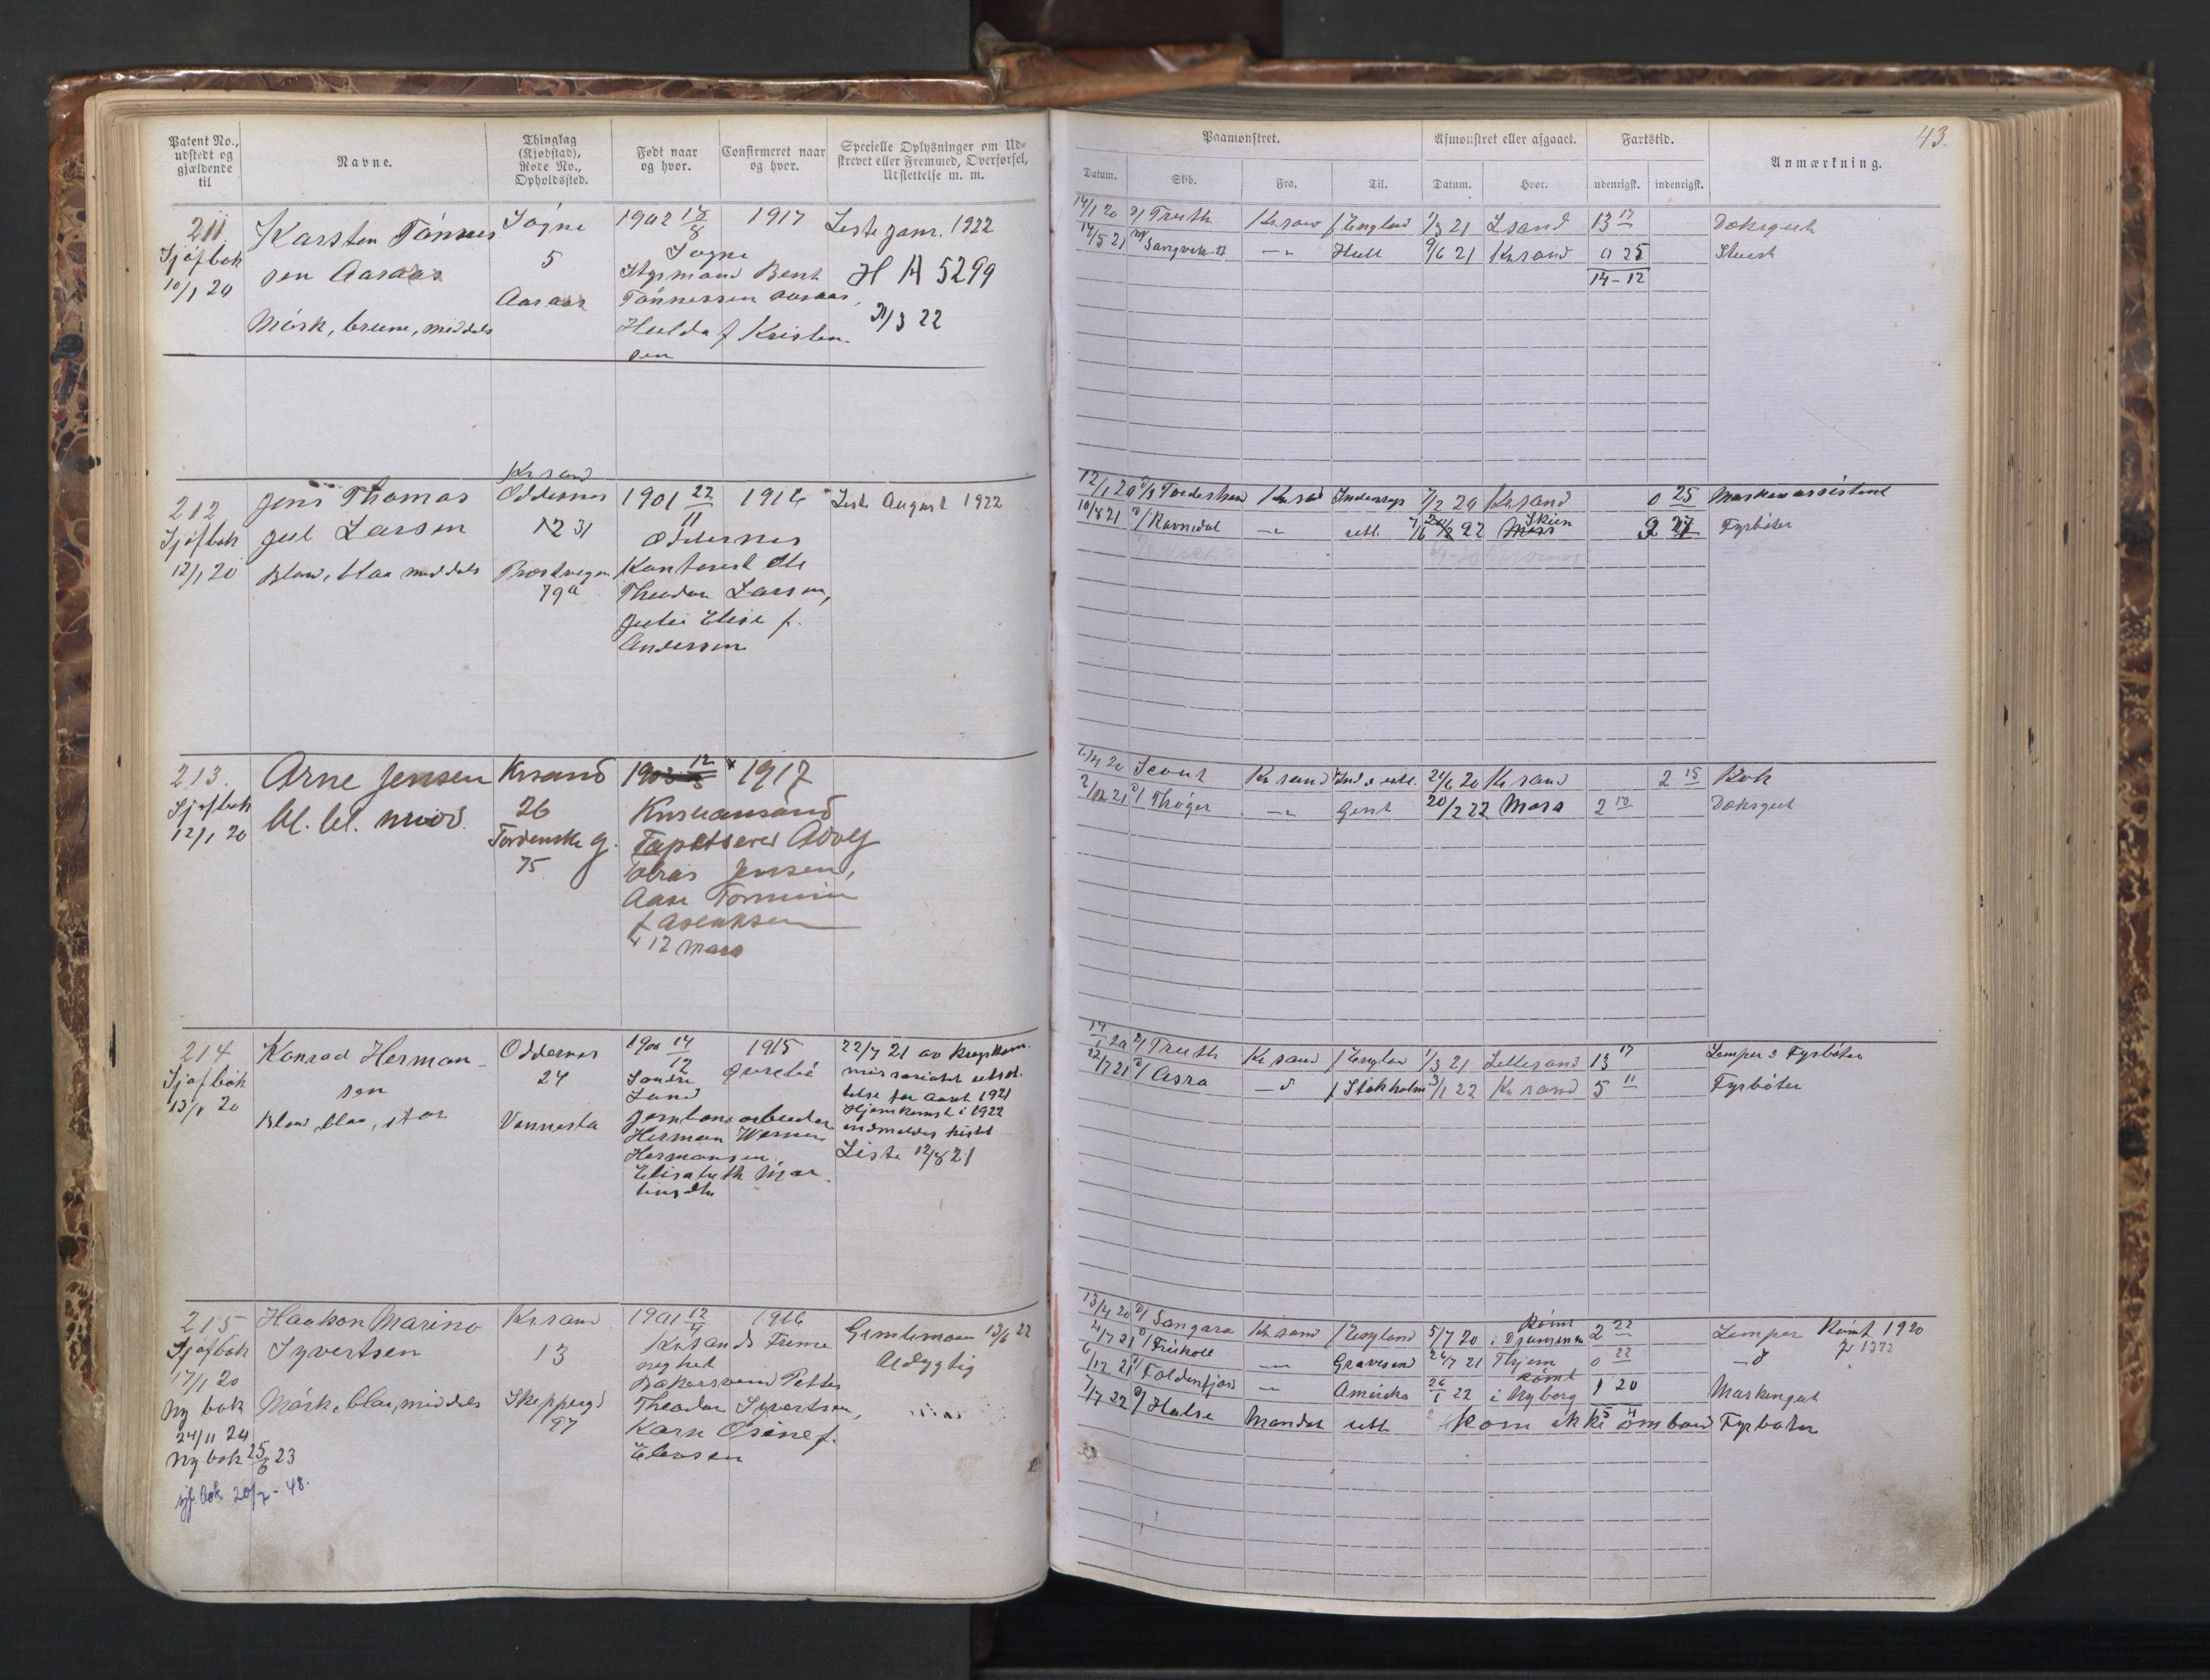 Patent No., udstedt og gjældende til
Navne.
Thinglag (Kjøbstad), Rode No., Opholdssted.
Født naar og hvor.
Confirmeret naar og hvor.
Specielle Oplysninger om Udskrevet eller Fremmed, Overførsel, Udslettelse m. m.
211
Sjøfbok
10/1 20
Karsten Tønnes
sen Aasaas
Mørk, brune, middels
Søgne
5
Aasaas
1902
1917
Søgne
Styrmand Bent
Tønnessen Aasaas,
Hulda f Kristen-
sen
Liste janr. 1922
H A 5299
22
212
Sjøfbok
12/1 20
Jens Thomas
Jul Larsen
Blond, blaa middels
Krsand
Oddernes
12 31
79a
1901 22/11
1916
Oddernes
Kontorist Ole
Theodor Larsen,
Julie Elise f.
Andersen
Liste August 1922
213.
Sjøfbok
12/1 20
Arne Jensen
bl. bl. midd.
Krsand
26
Tordenskj g.
75
1917
Kristiansand
Tapetserer Adolf
Tobias Jensen,
f Aslaksen
x 12 Mars
214
Sjøfbok
13/1 20
Konrad Herman-
sen
Blond, blaa, stor
Oddernes
24
Vennesla
14/12
1915
Søndre
Land
Jernbanearbeider
Herman
Hermansen,
Elisabeth Mar-
tinsdtr
22/7 21 av Krigskom-
telse for Aaret 1921
Hjemkomst i 1922
indmeldes hist
Liste 12/8 21
215
Sjøfbok
17/1 20
Ny bok
24/11 20
Ny bok 25/6 23
sjf. bok 20/7 - 48.
Haakon Marino
Syvertsen
Mørk, blaa, middels
Krsand
13
Skipperg
97
1901 12/4
1916
Krsands Frime
nighet
Bakersvend Petter
Theodor Syvertsen,
Karn Osine f.
Elevsen
Gimlemoen 13/6 22
Udygtig
43.
Paamønstret.
Afmønstret eller afgaaet.
Fartstid.
Anmærkning.
Datum.
Skib.
Fra.
Til.
Datum.
Hvor.
udenrigsk.
indenrigsk.
14/1 20 Truth Krsand f England 1/3 21 Lsand 13 17 Dæksgut
Hull 9/6 21 Krsand 0 25 Stuert
14-12
12/1 20 Krsand Indenrigs 7/2 20 Krsand 0 25 Maskinassistent
10/8 21 Ravnedal utl. 22 Skien Fyrbøter
20 Scout Krsand Ind & utl. 20 Krsand 2 15 Kok
21 Thøger Gent 20/2 22 Moss 2 18 Dæksgut
14/1 20 Truth Krsand f England 1/3 21 Lillesand 13 17 Lemper & Fyrbøter
22/7 21 Asra f Stokholm 22 Krsand 5 11 Fyrbøter
13/4 20 Sangara Krsand f England 5/7 20 Rømt i Drammen 2 22 Lemper Rømt 1920
4/7 21 Gravesend 26/7 21 Thjem 0 22
6/12 21 Foldenfjord Amerika 26/1 22 Rømt i Nyborg 1 20 Maskingut
7/7 22 Mandal utl kom ikke ombord Fyrbøter